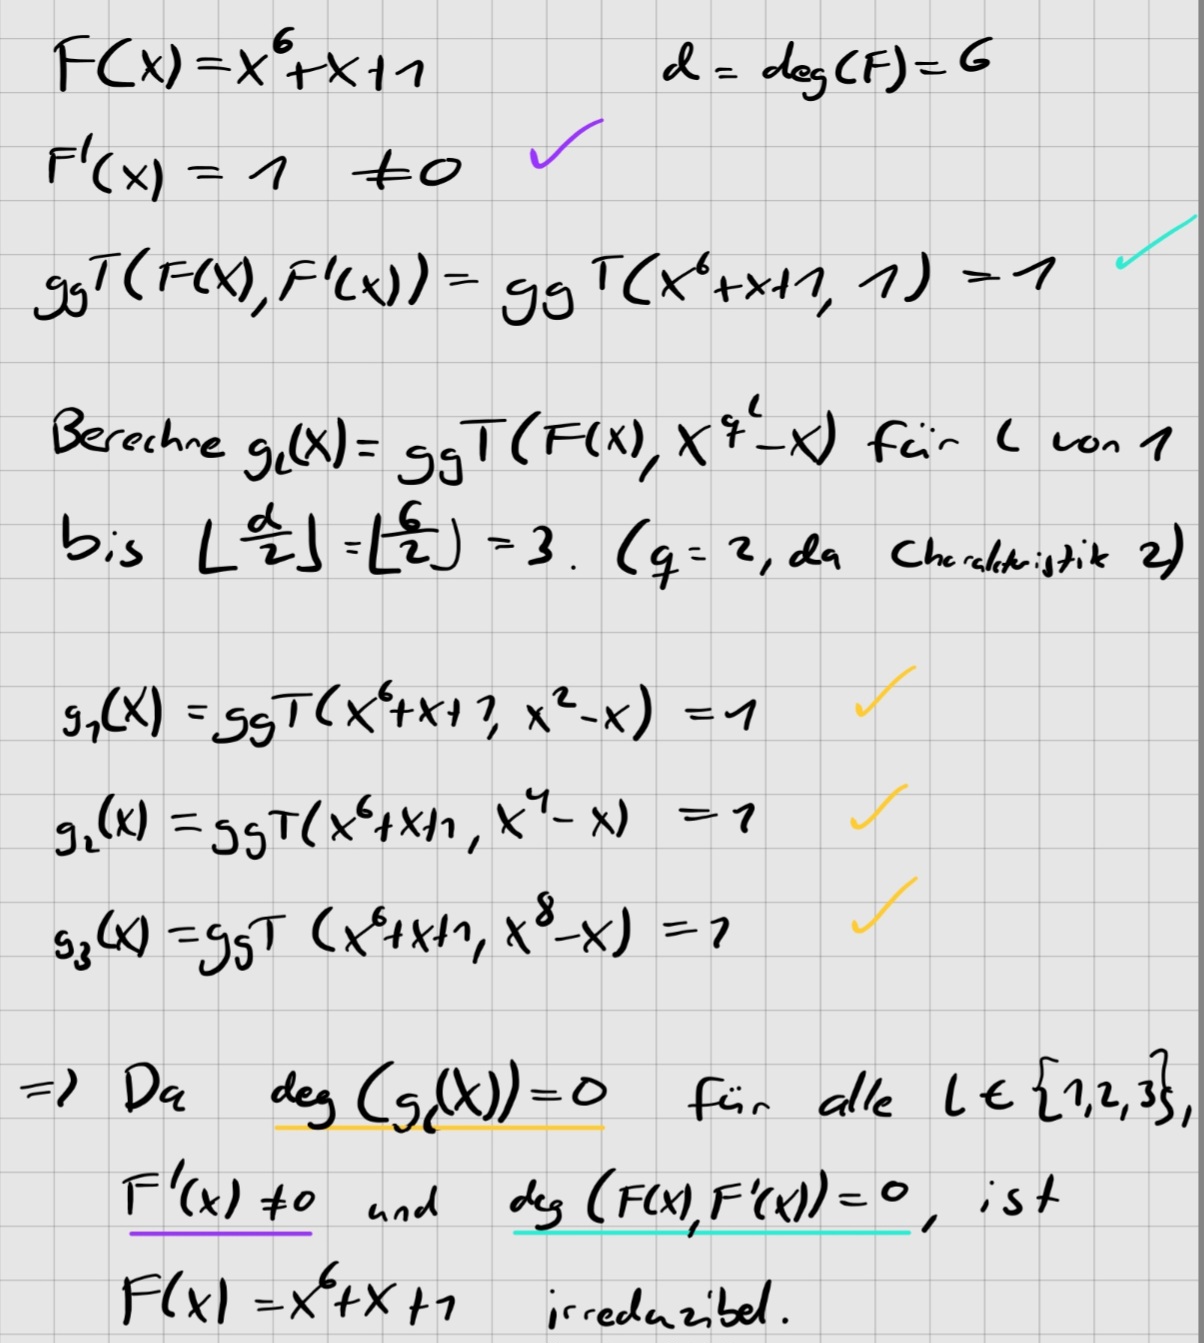 F(x) = x⁶+x+1 d = deg(F) = 6
F'(x) = 1 ≠0 ✓
ggT(F(x), F'(x)) = ggT(x⁶+x+1, 1) = 1 ✓
Berechne g_l(x) = ggT(F(x), x^(q^l) - x) für l von 1
bis ⌊d/2⌋ = ⌊6/2⌋ = 3. (q = 2, da Charakteristik 2)
g₁(x) = ggT(x⁶+x+1, x²-x) = 1 ✓
g₂(x) = ggT(x⁶+x+1, x⁴-x) = 1 ✓
g₃(x) = ggT (x⁶+x+1, x⁸-x) = 1 ✓
=> Da deg (g_l(x)) = 0 für alle l ∈ {1,2,3},
F'(x) ≠0 und deg (F(x), F'(x)) = 0, ist
F(x) = x⁶+x+1 irreduzibel.